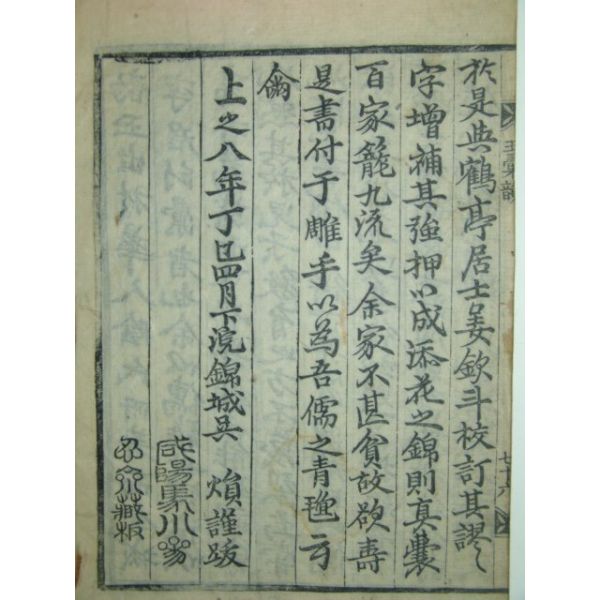 玉彙韻
七十六
於是與鶴亭居士姜欽斗校訂其謬
字增補其強押以成添花之錦則真囊
百家籠九流矣余家不甚貧故欲壽
是書付于雕手以為吾儒之青氈云
上之八年丁巳四月下浣錦城吳 熉謹跋
咸陽集川
藏板